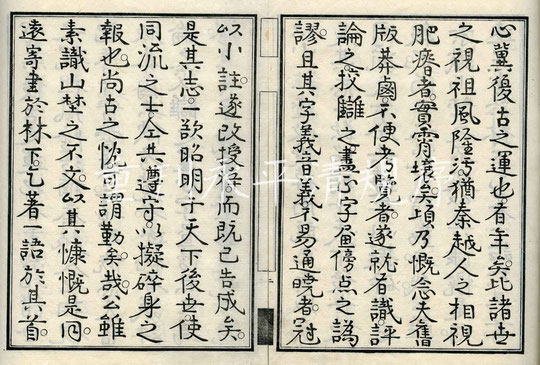 心冀復古之運也有年矣比諸世
之視祖風隆污猶秦越人之相視
肥瘠者實霄壤矣頃乃慨念夫舊
版莽鹵不便考覽者遂就者識評
論之挍讎之畫正字畫傍点之譌
謬且其字義音義不易通曉者冠
以小註遂改授梓而既已告成矣
是其志一欲昭明于天下後世使
同流之士仝共遵守以擬碎身之
報也尚古之忱可謂勤矣哉公雖
素識山埜之不文以其慷慨是同
遠寄書於林下乞著一語於其首